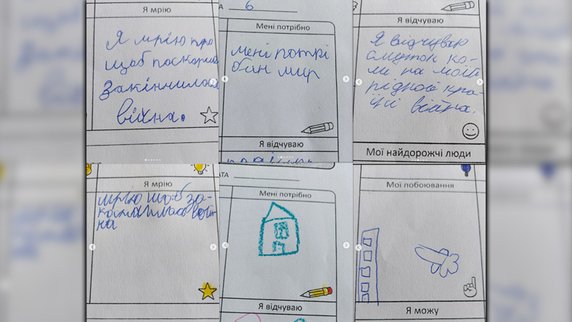 Я мрію
Я мрію про
щоб
закінчилась
війна.
6
Мені потрібно
мені потрі
бан мир
Я відчуваю
Я відчуваю
Я відчуваю
смуток ко-
ли на моїй
рідной кра-
війна.
Мої найдорожчі люди
Я мрію
мрію щоб за-
на
АТА
Мені потрібно
Я відчуваю
Мої побоювання
Я можу